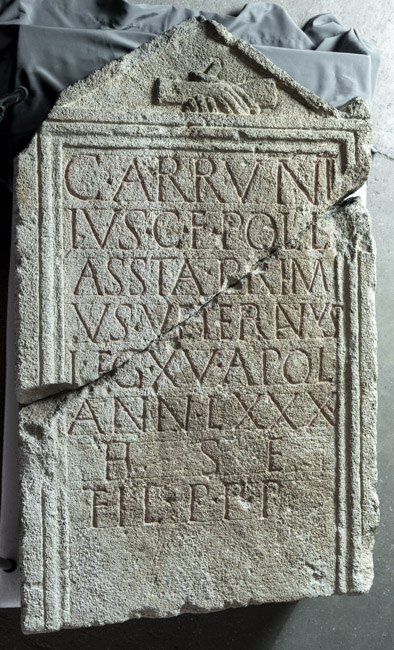 C·ARRVNT
IVS·C·F·POLL
ASSTA·PRIM
VS·VETERNVS
LEG·XV·APOL
ANN·LXXX
H S E
FIL·P·P·P